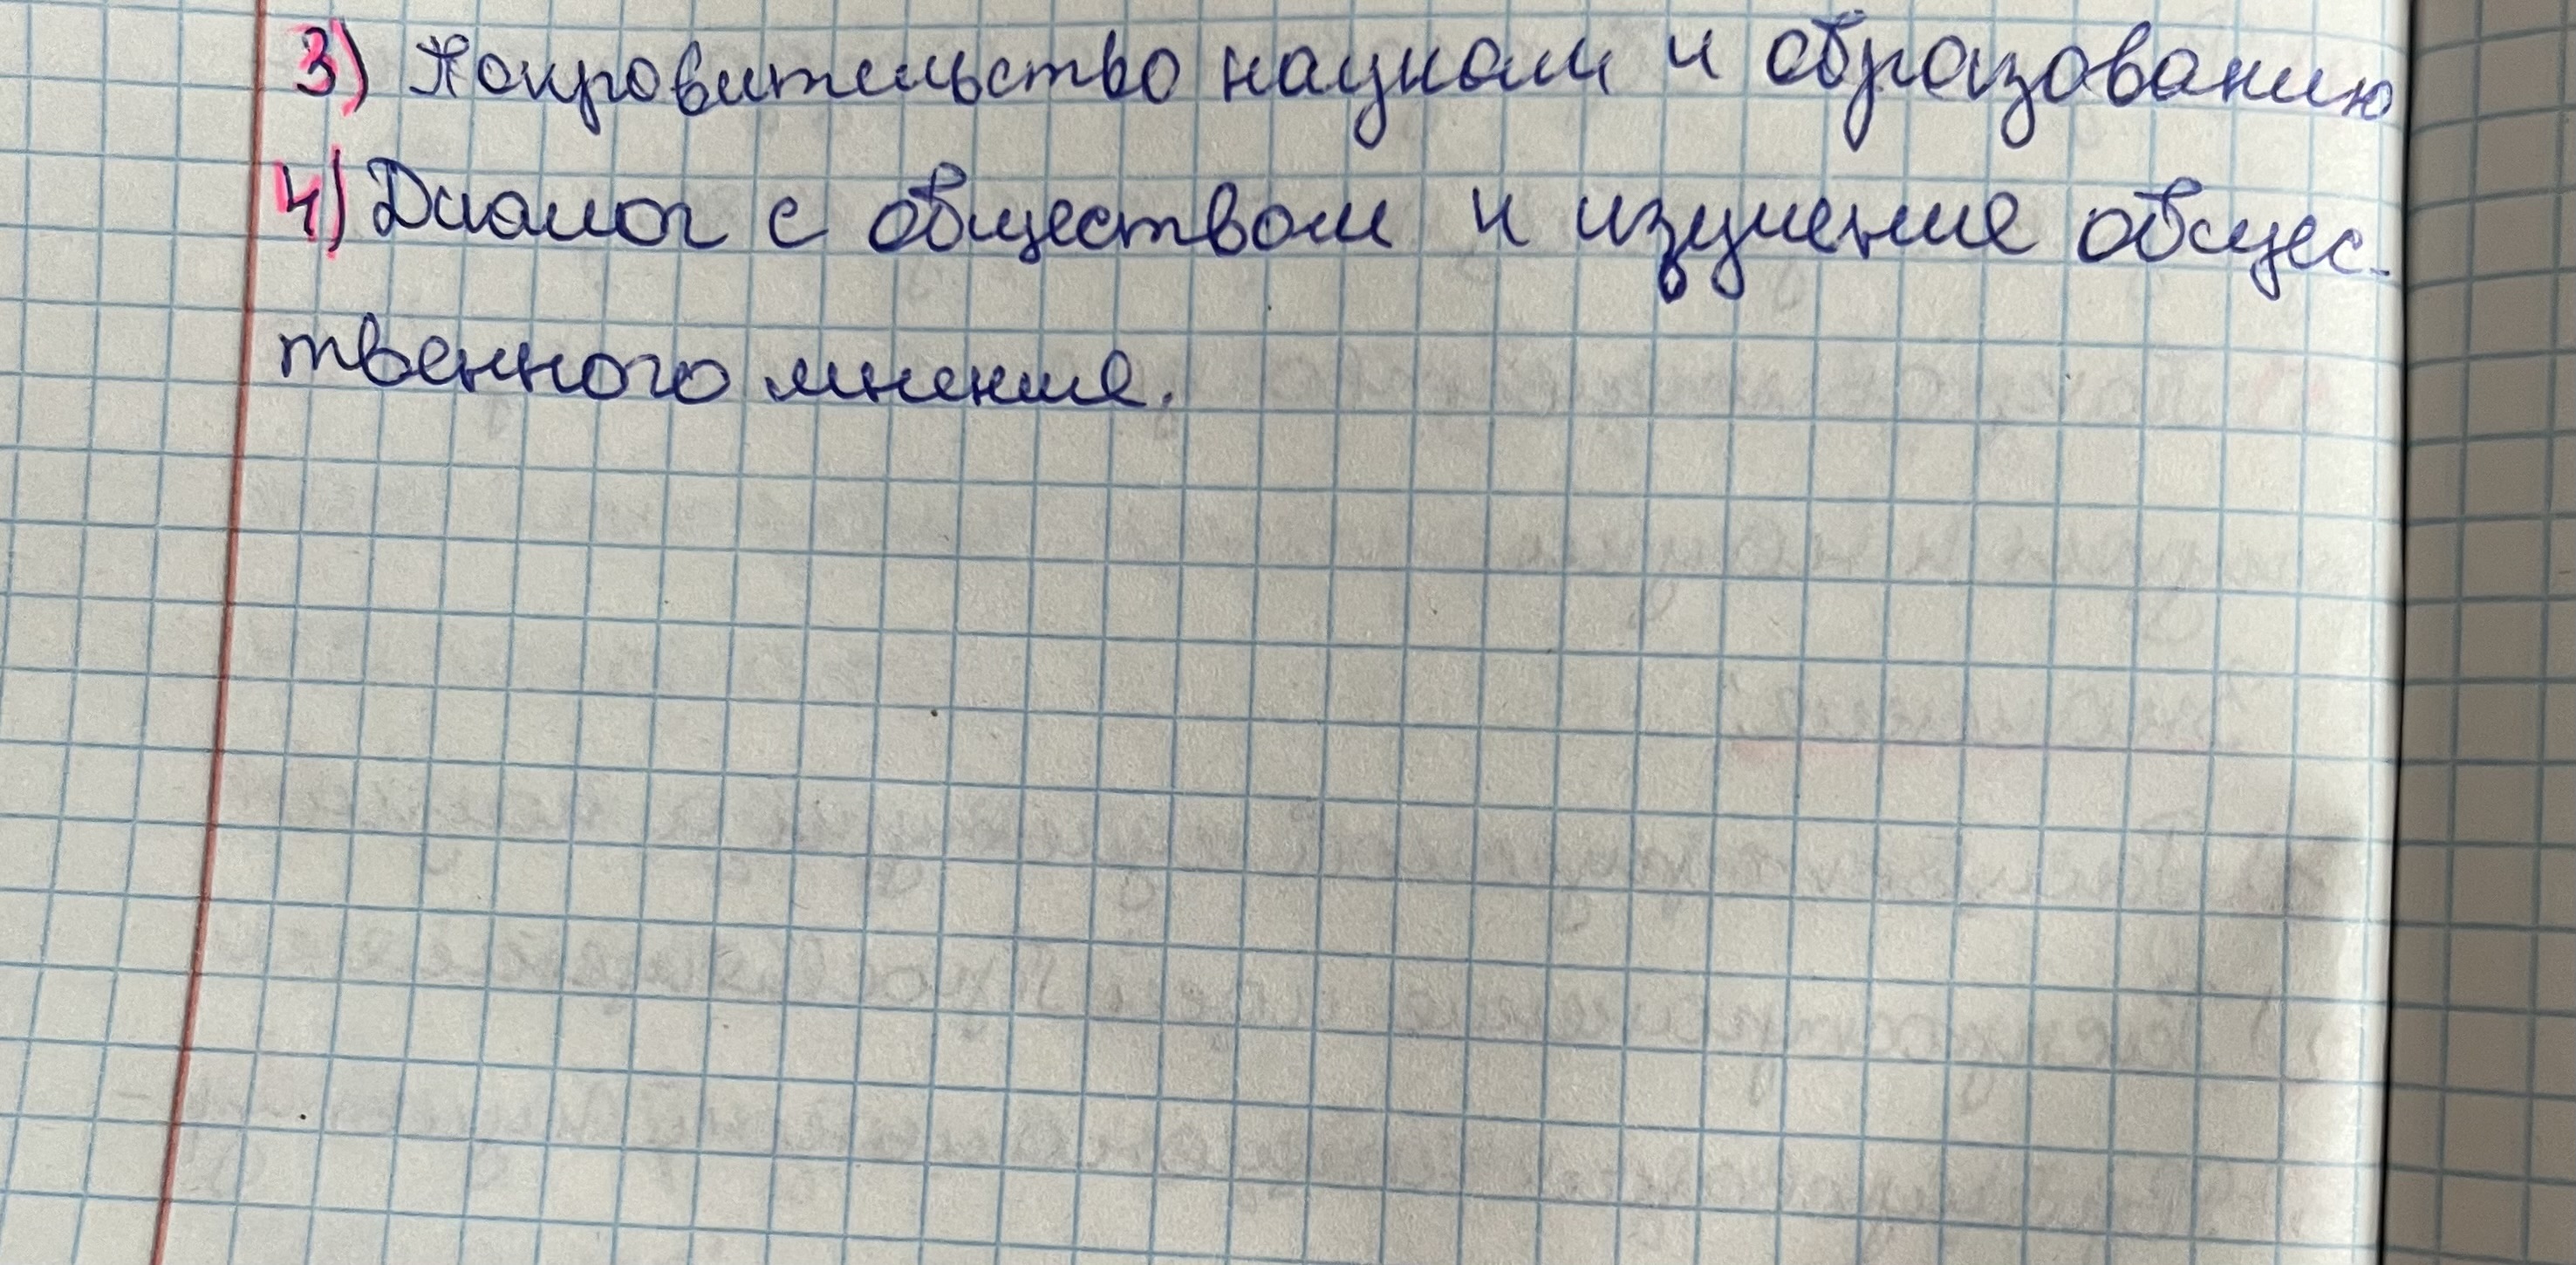 3) Покровительство наукам и образованию
4) Диалог с обществом и изучение общес-
твенного мнения.